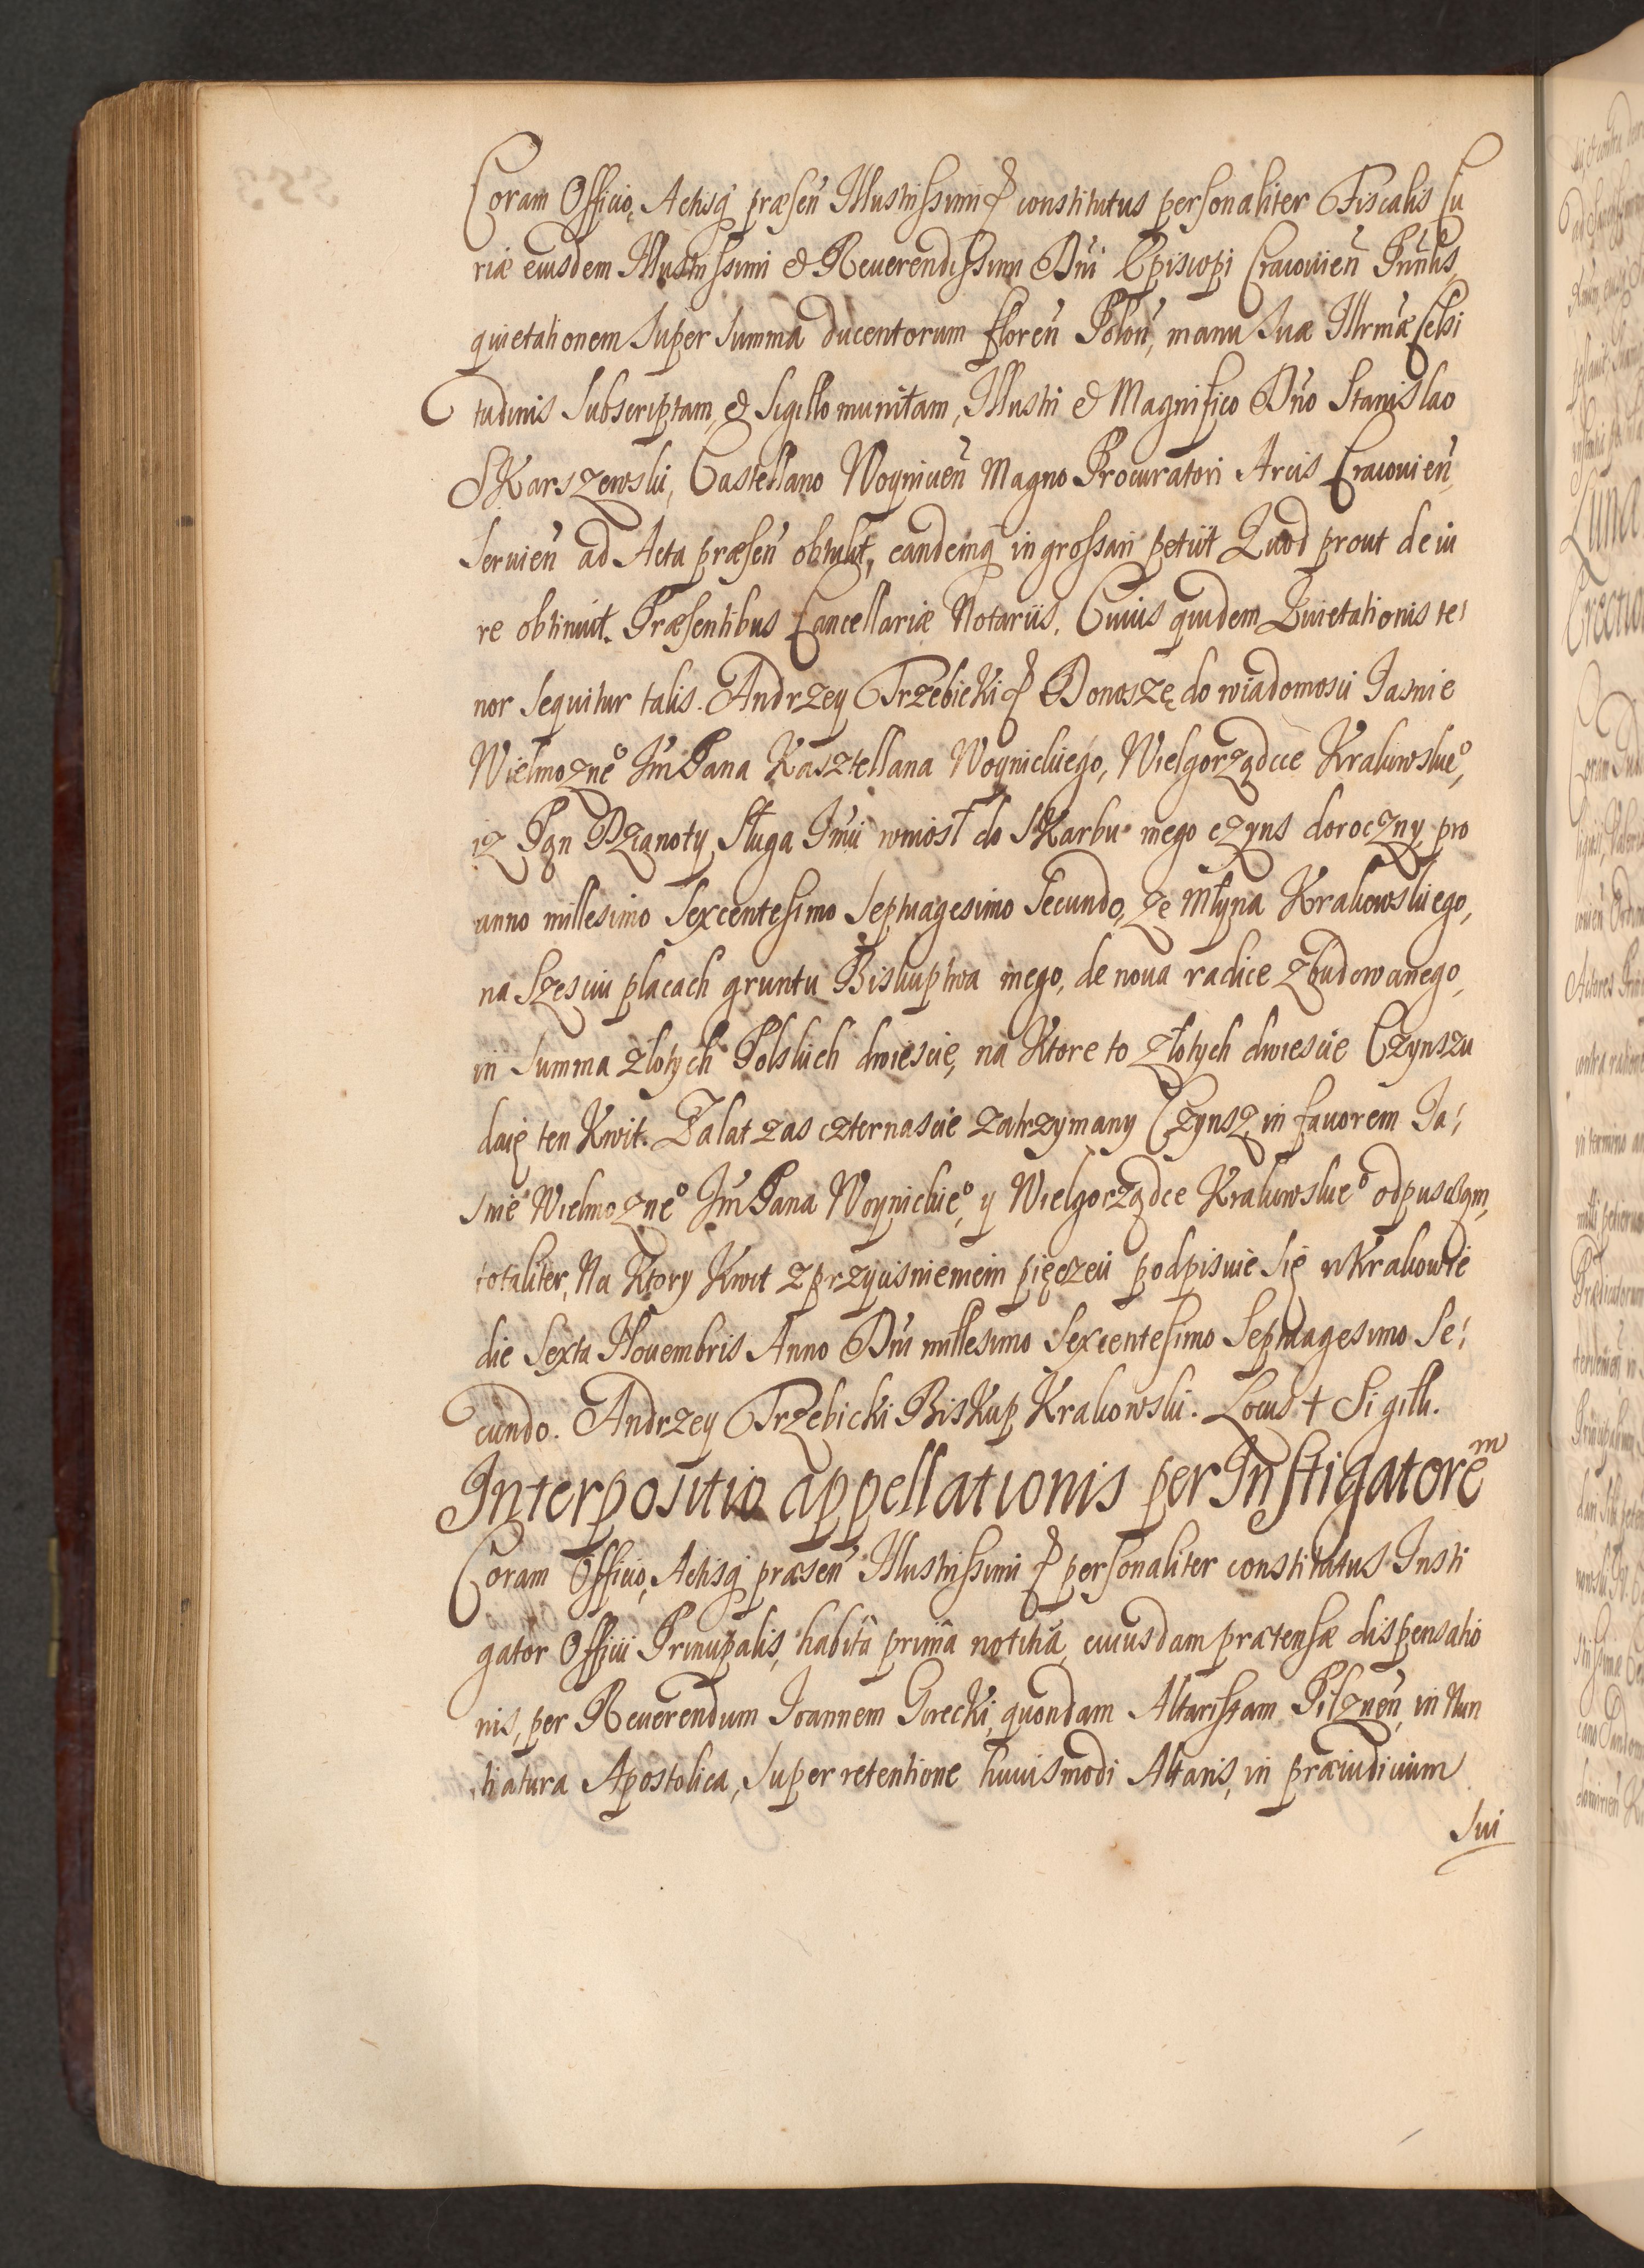 Coram Officio, Actisq̃ præsen̄ Illustrissimi & constitutus personaliter Fiscalis Cu
riæ eiusdem Illustrissimi & Reuerendissimi Dn̄i Episcopi Cracouien̄ Prin̄lis,
quietationem super summa ducentorum floren̄ Polon̄, manu suæ Illrm̄æ Celsi
tudinis subscriptam, & sigillo munitam, Illustri & Magnifico Dn̄o Stanislao
Skarszewski, Castellano Woynicen̄ Magno Procuratori Arcis Cracouien̄,
seruien̄ ad Acta præsen̄ obtulit, eandemq̃ ingrossari petiit Quod prout de iu
re obtinuit. Præsentibus Cancellariæ Notariis. Cuius quidem Quietationis te:
nor sequitur talis. Andrzey Trzebicki & Donoszę do wiadomosci Jasnie
Wielmozne͛ Jm̄ Pana Kasztellana Woynickiego, Wielgorządcce Krakowskie͛,
iz Pan Dzianoty sługa Jm̄ci wniosł do skarbu mego czyns doroczny, pro
anno millesimo sexcentesimo septuagesimo secundo, ze Młyna Krakowskiego,
na szesciu placach gruntu Biskuptwa mego, de noua radice zbudowanego,
in summa złotych Polskich dwiescie, na ktore to złotych dwiescie Czynszu
daię ten Kwit. Zalat zas czternascie zatrzymany Czynsz, in fauorem Ja:
snie Wielmozne͛ Jm̄ Pana Woynickie͛, y Wielgorządce Krakowskie͛ odpusczam,
totaliter, Na ktory Kwit z przycisnieniem pięczeci podpisuie się w Krakowie
die sexta Nouembris Anno Dn̄i millesimo sexcentesimo septuagesimo se:
cundo. Andrzey Trzebicki Biskup Krakowski. Locus † Sigilli.
Interpositio appellationis per Instigatorem
Coram Officio, Actisq̃ præsen̄ Illustrissimi & personaliter constitutus Insti
gator Officii Principalis, habita prima notitia, cuiusdam prætensæ dispensatio
nis, per Reuerendum Joannem Gorecki, quondam Altaristam Pilznen̄, in Nun
tiatura Apostolica, super retentione huiusmodi Altaris, in præiudicium
sui